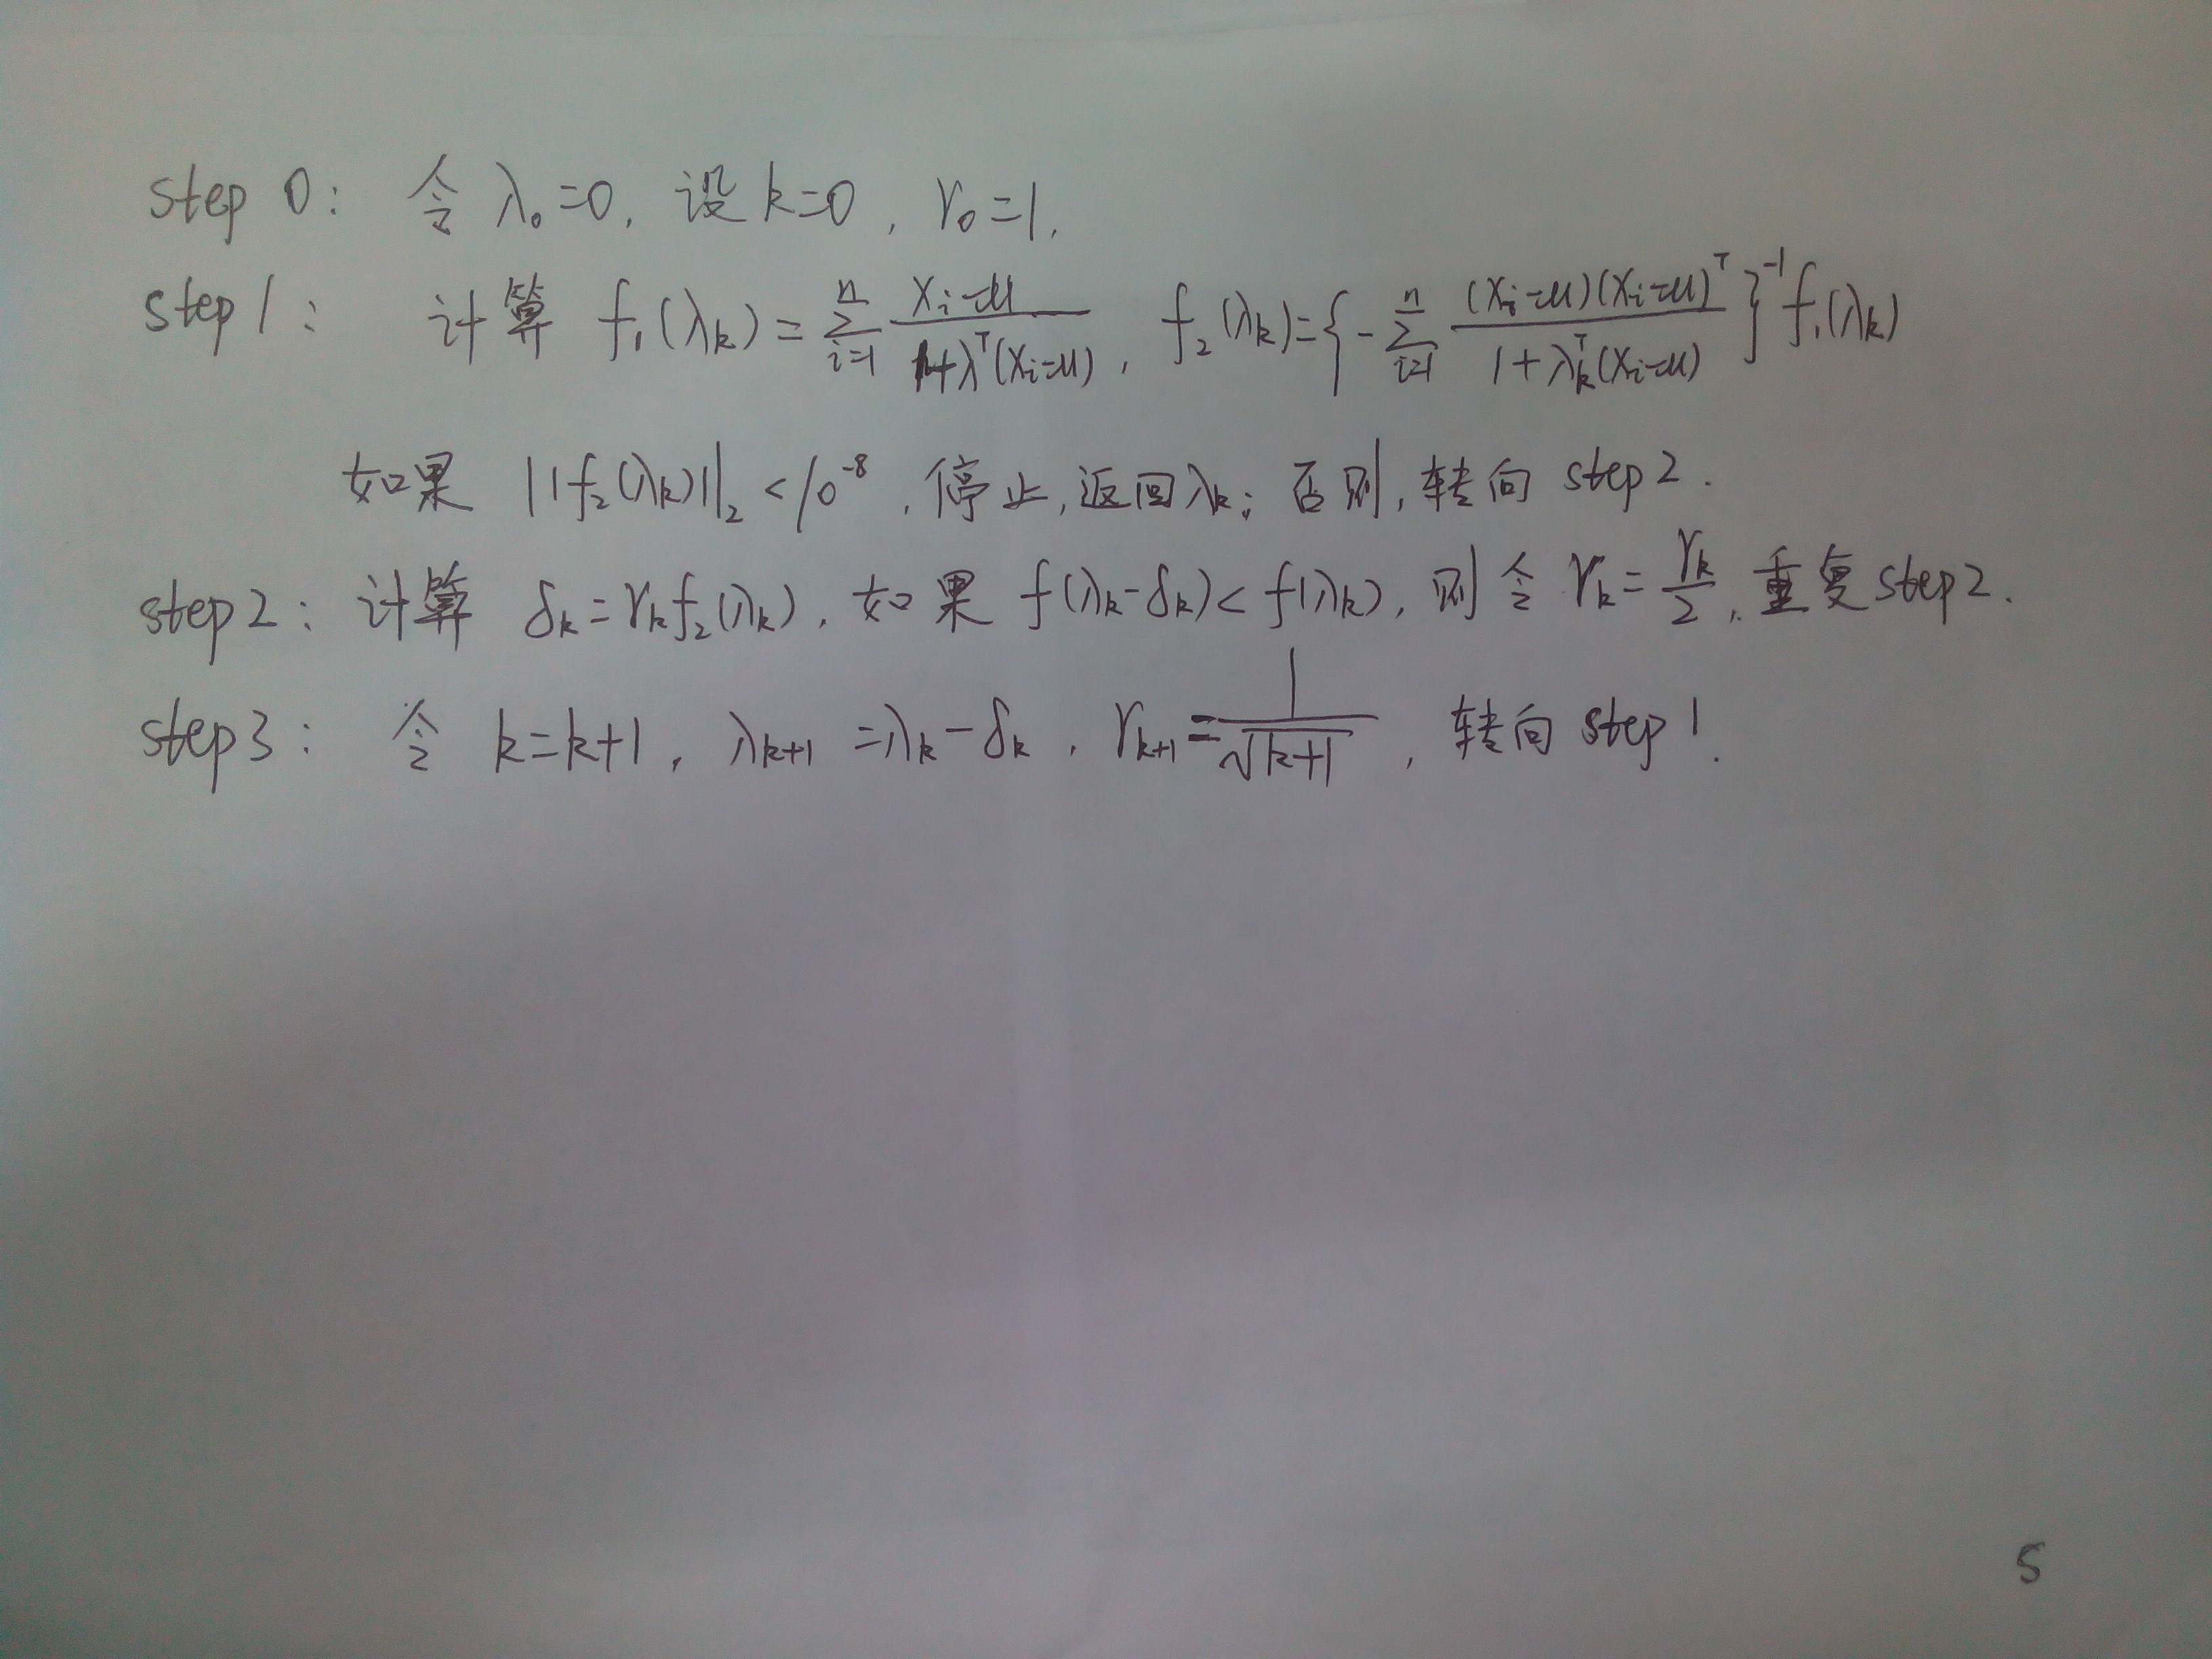 step 0: 令 λ₀=0, 设 k=0, γ₀=1.
step 1: 计算 f₁(λₖ) = \sum_{i=1}^{n} \frac{X_i-μ}{1+λ^T(X_i-μ)}, f₂(λₖ)=\{-\sum_{i=1}^{n} \frac{(X_i-μ)(X_i-μ)^T}{1+λ_k^T(X_i-μ)}\}^{-1} f₁(λₖ)
如果 ||f₂(λₖ)||₂ < 10⁻⁸, 停止, 返回λₖ; 否则, 转向 step 2.
step 2: 计算 δₖ=γₖf₂(λₖ), 如果 f(λₖ-δₖ)< f(λₖ), 则令 γₖ=\frac{γₖ}{2}, 重复 step 2.
step 3: 令 k=k+1, λₖ₊₁=λₖ-δₖ, γₖ₊₁=\frac{1}{\sqrt{k+1}}, 转向 step 1.
5